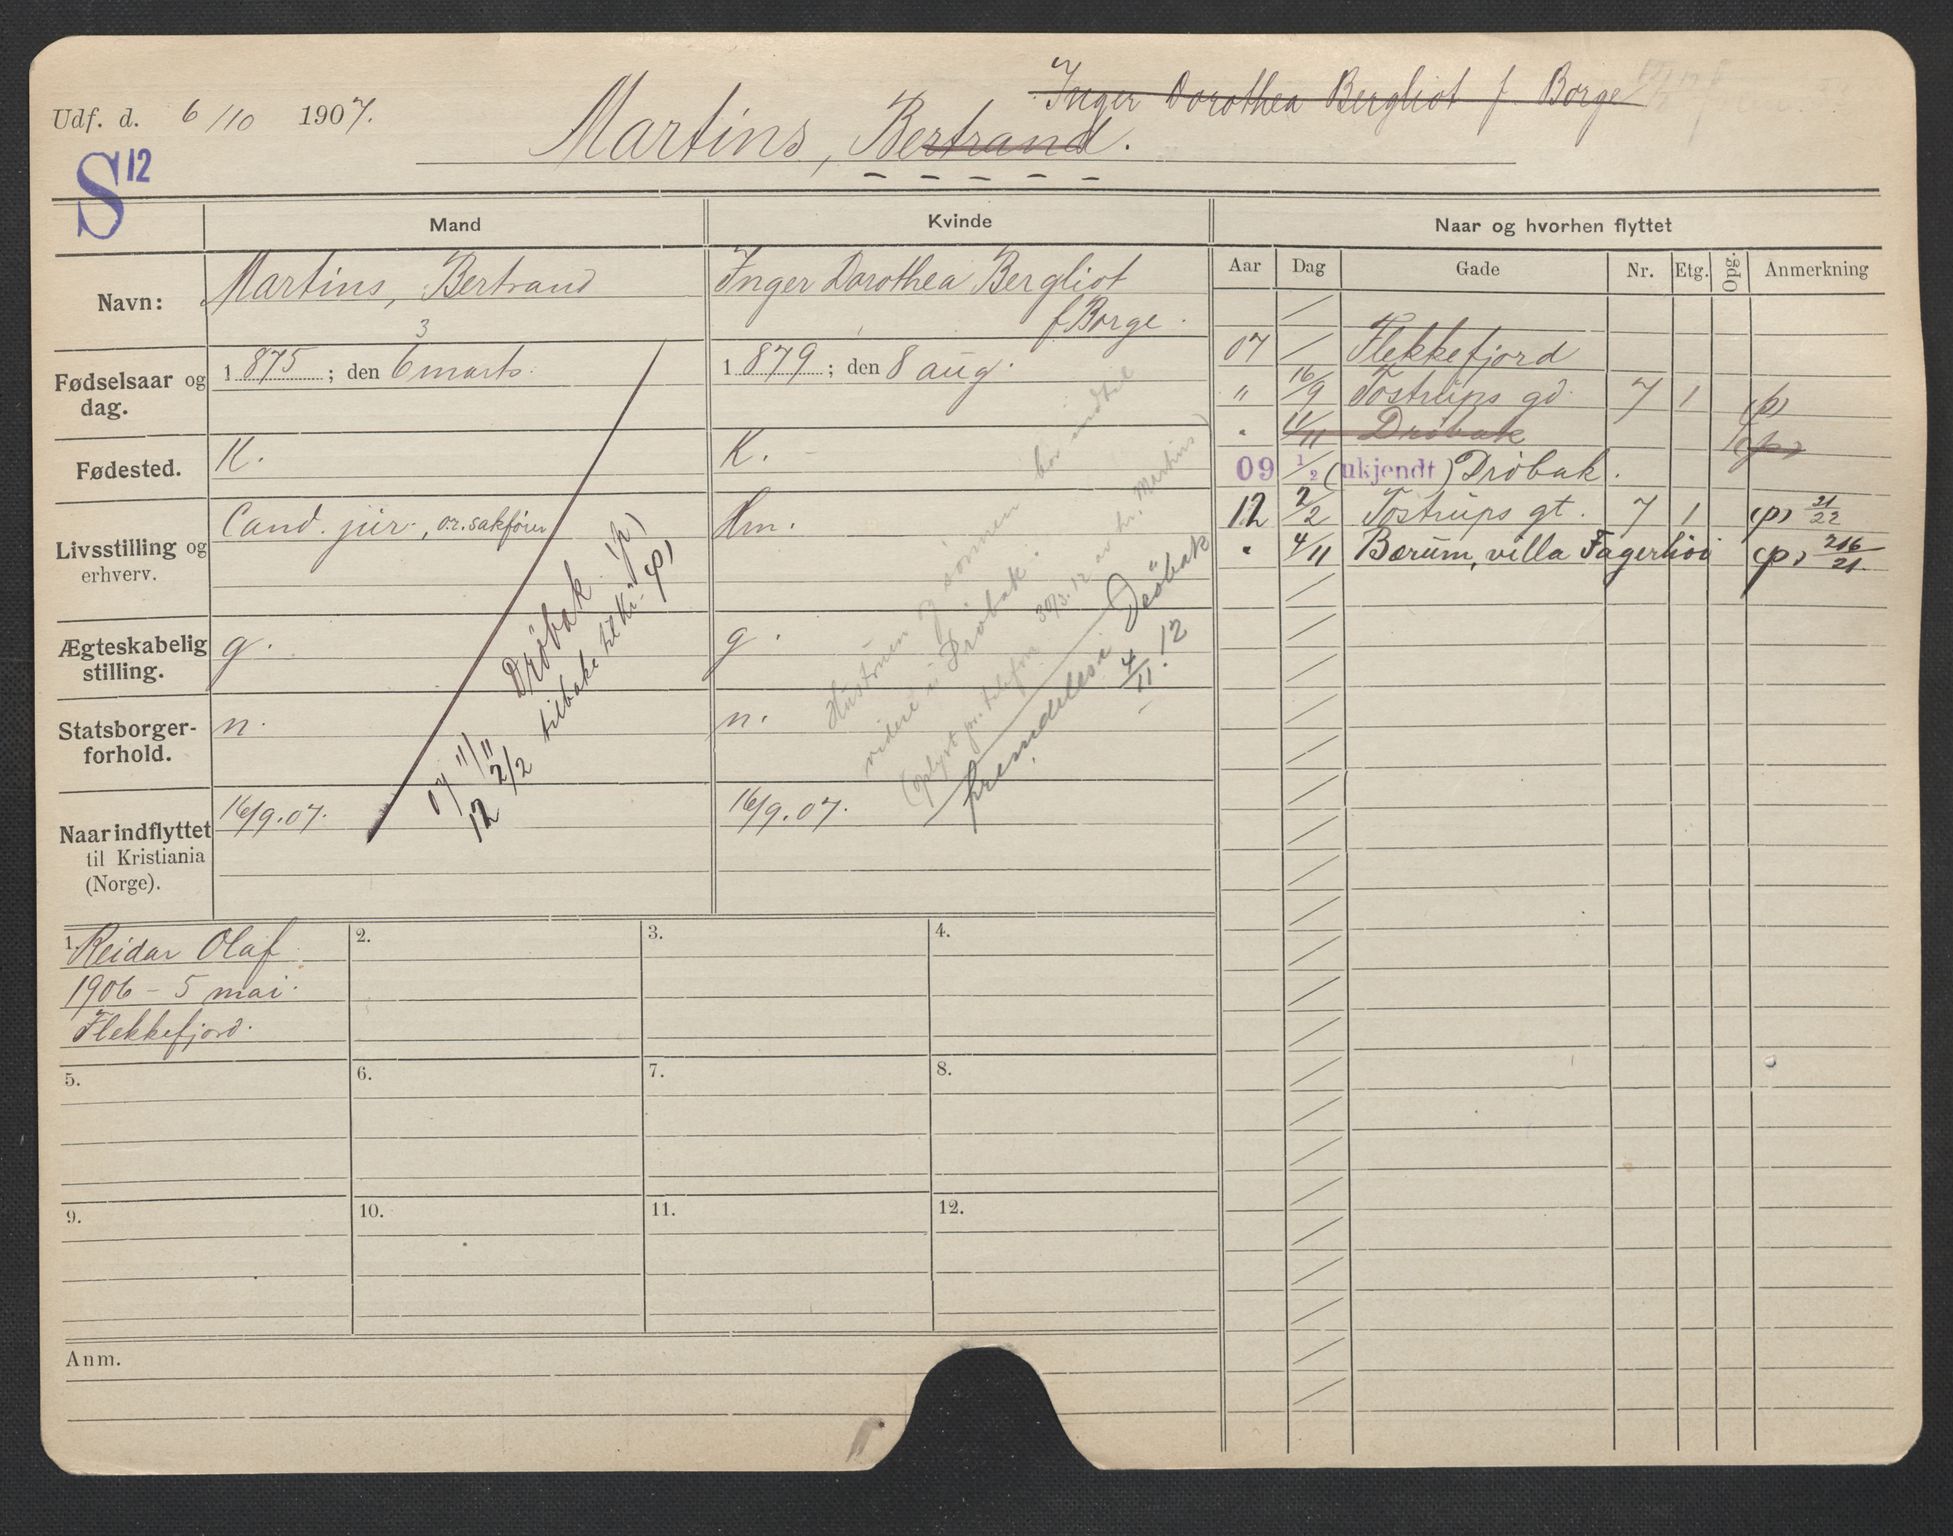 Udf. d. 6/10 1907.
Inger Dorothea Bergliot f. Borge
Martins, Bertrand.
S 12
Mand
Kvinde
Naar og hvorhen flyttet
Aar Dag Gade Nr. Etg. Opg. Anmerkning
Navn:
Martins, Bertrand
Inger Dorothea Bergliot
f. Borge.
Fødselsaar og dag.
1 875 ; den 6 marts.
3
1 879 ; den 8 aug.
Fødested.
K.
K.
Livsstilling og erhverv.
Cand. jur., o.r.sakfører
Hm.
Ægteskabelig stilling.
g.
g.
Statsborger-
forhold.
n.
n.
Naar indflyttet
til Kristiania
(Norge).
16/9.07.
16/9.07.
07 11/11 Drøbak (p)
12 2/2 tilbake til Kr. (p)
Hustruen og sønnen bor indtil
videre i Drøbak.
(oplyst pr. telefon 30/3.12 av hr. Martins)
fremdeles i Drøbak
4/11.12
07 / Flekkefjord
" 16/9 Tostrups gd. 7 1 (p)
" 11/11 Drøbak (p)
09 1/2 (ukjendt) Drøbak.
12 2/2 Tostrups gt. 7 1 (p) 21/22
" 4/11 Bærum, villa Fagerhøi (p) 216/21
1. Reidar Olaf
1906 - 5 mai.
Flekkefjord.
2.
3.
4.
5.
6.
7.
8.
9.
10.
11.
12.
Anm.